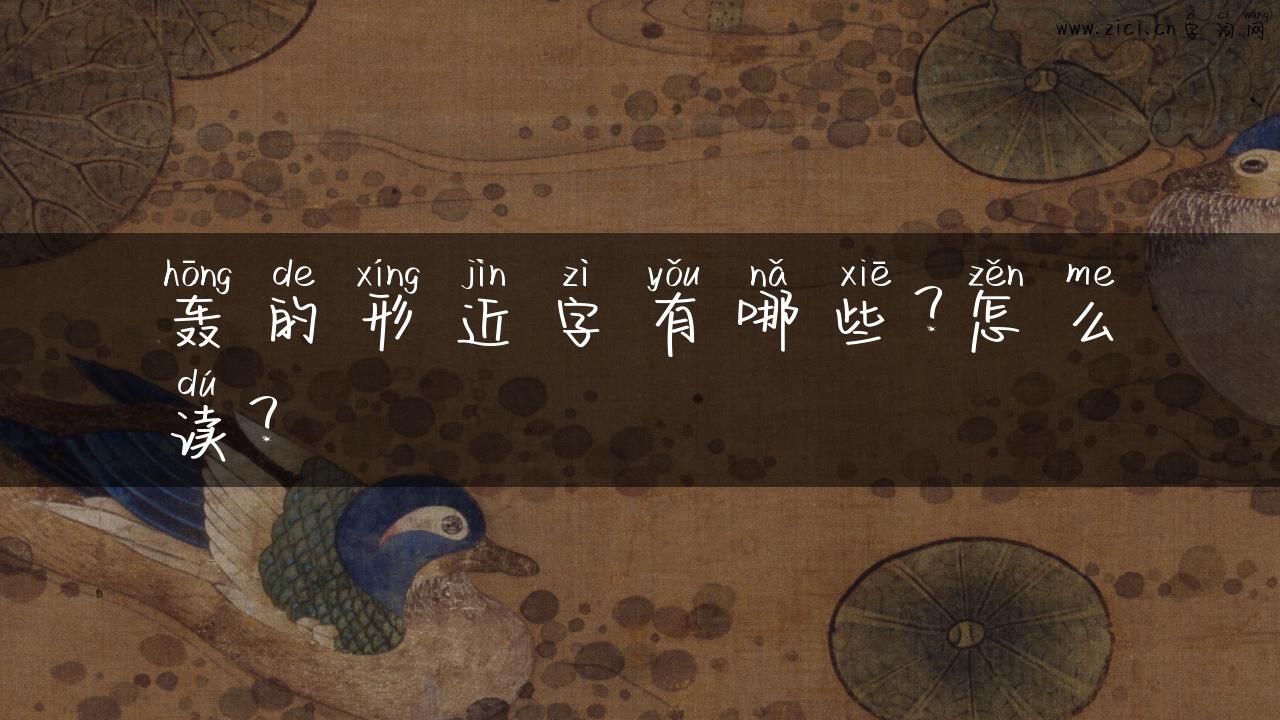 zì cí wǎng
www.zici.cn 字词网
hōng de xíng jìn zì yǒu nǎ xiē zěn me
轰的形近字有哪些？怎么
dú
读？